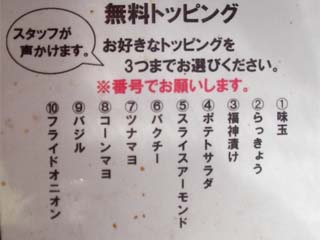 無料トッピング
スタッフが
声かけます。
お好きなトッピングを
3つまでお選びください。
※番号でお願いします。
①味玉
②らっきょう
③福神漬け
④ポテトサラダ
⑤スライスアーモンド
⑥パクチー
⑦ツナマヨ
⑧コーンマヨ
⑨バジル
⑩フライドオニオン